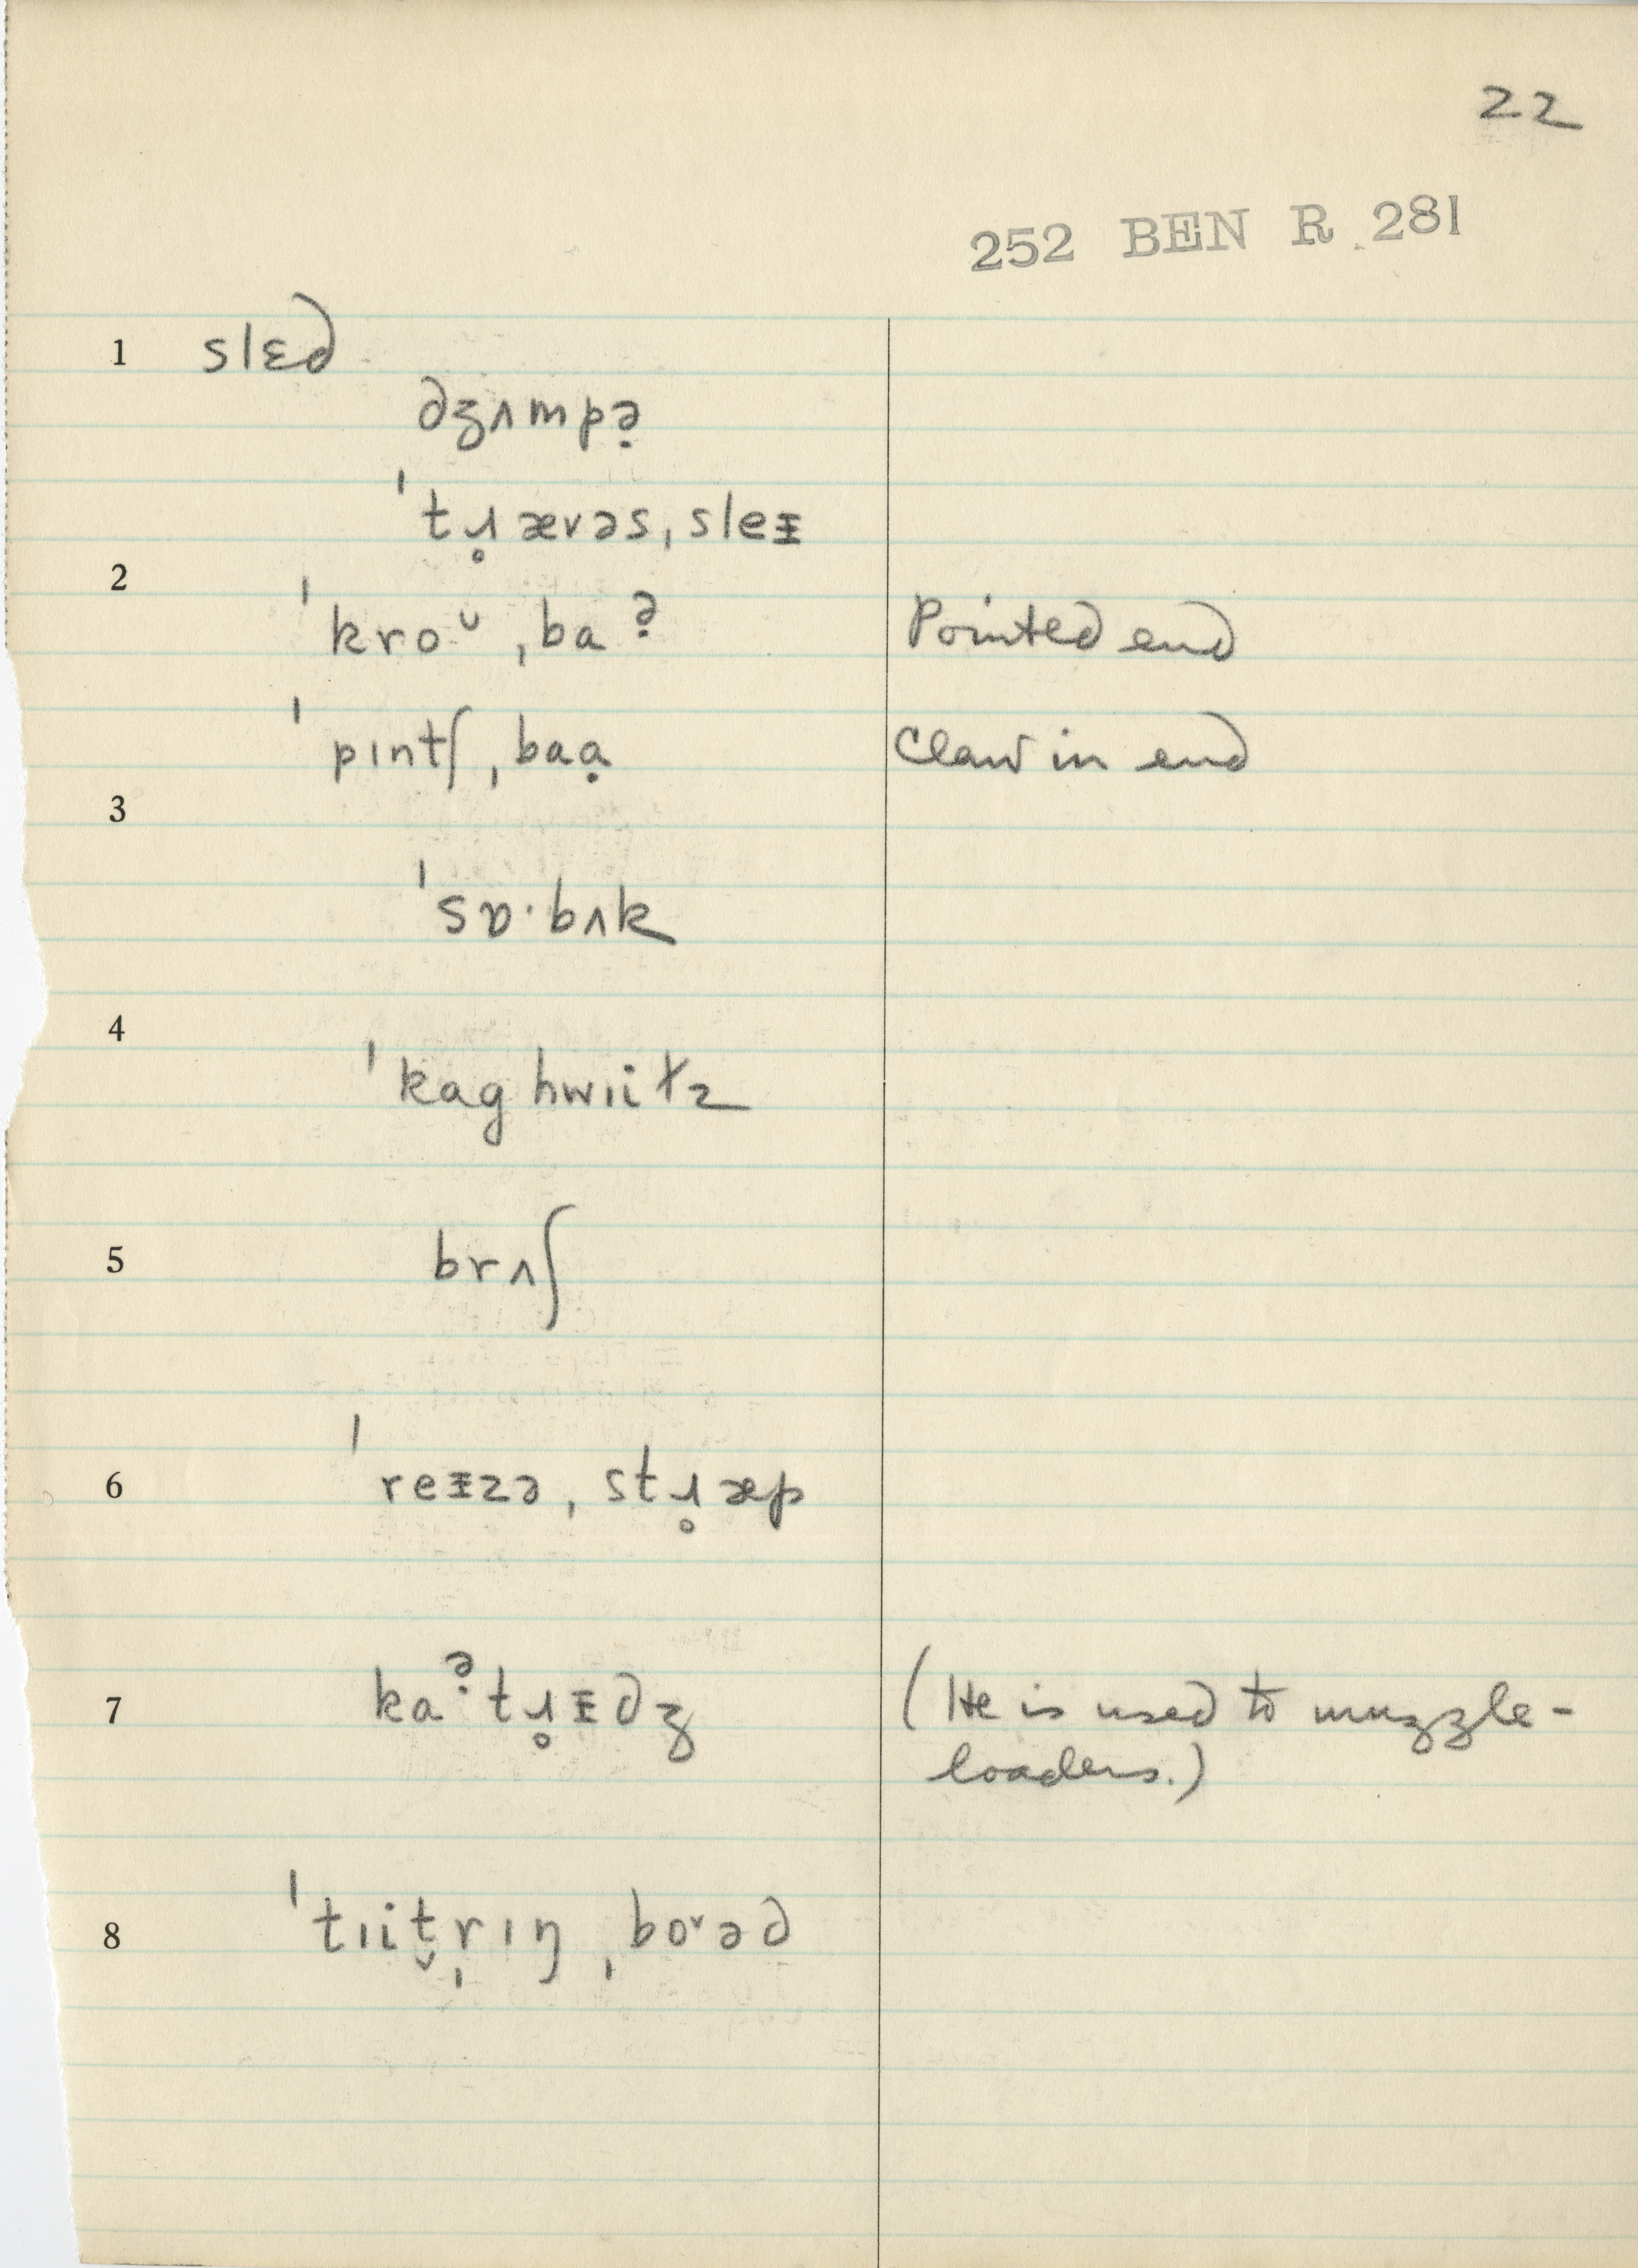 22
252 BEN R 281
1 slɛd
dʒʌmpə̣
ˈtɹ̥ævəsˌsleᵻ
2
ˈkroᵕˌbaə̣ Pointed end
ˈpɪntʃˌbaạ Claw in end
3
ˈsɒ·bʌk
4
ˈkaghwɪitz
5 brʌʃ
6 ˈreᵻzəˌstɹ̥æp
7 kaə̣tɹ̥ᵻdʒ (He is used to muzzle-
loaders.)
8 ˈtɪit̬r̩ɪŋˌboᵛəd